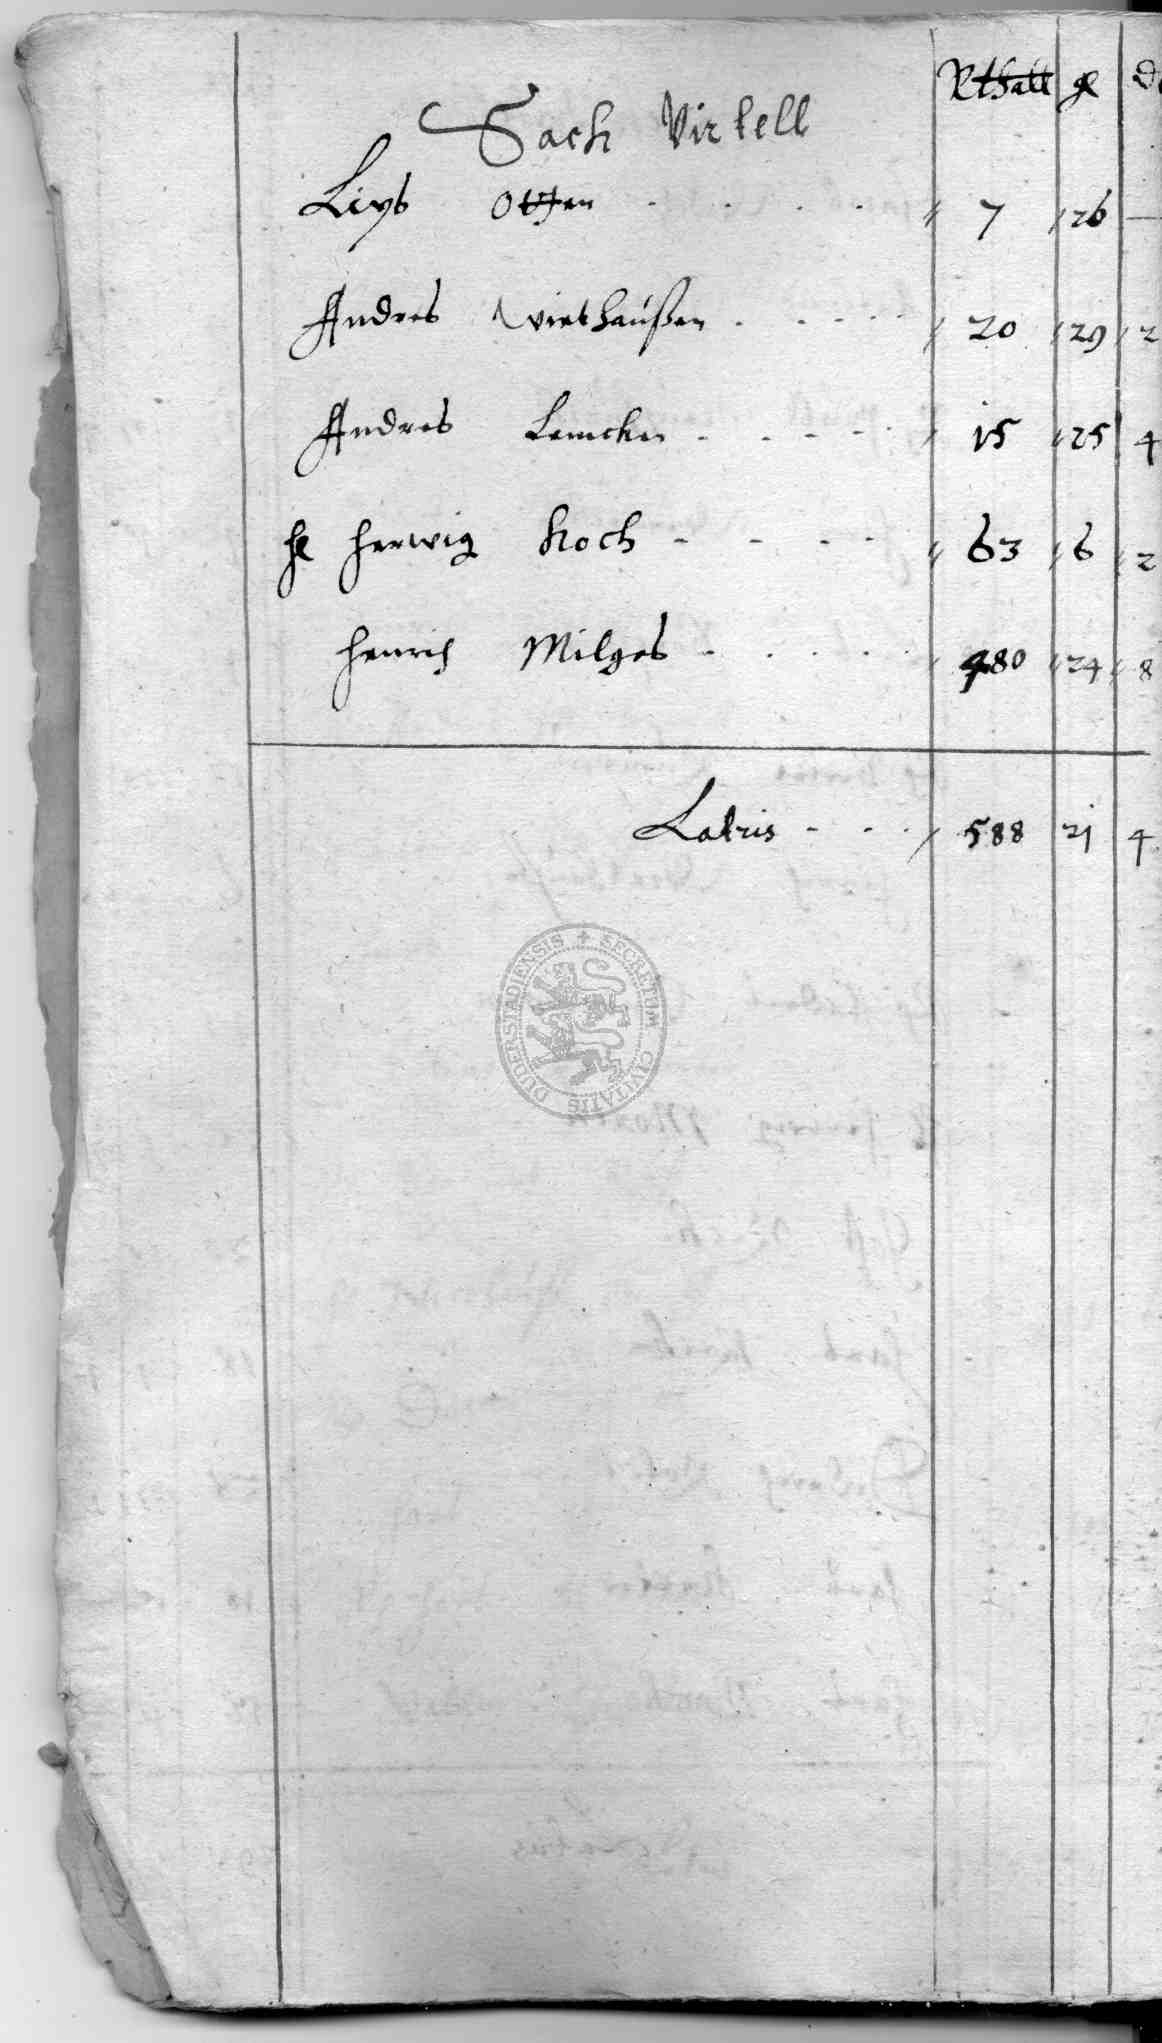 Rthall gl d
Sack Virtell
Liys Otten - - - - 7 26 —
Andres Wiethaußen - - - - 20 29 2
Andres Lemcken - - - - - 15 25 4
H Herwig Koch - - - - 63 6 2
Henrich Milges - - - - - 480 24 8
Latris - - - 588 21 4
SECRETUM CIVITATIS DUDERSTADIENSIS